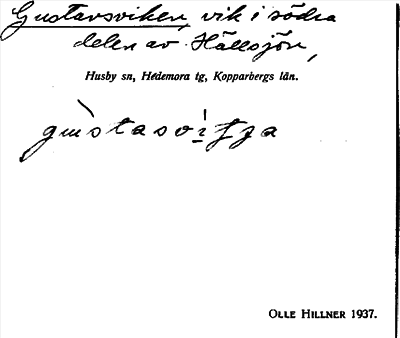 Gustavsviken, vik i södra
delen av Hällsjön,
Husby sn, Hedemora tg, Kopparbergs län.
OLLE HILLNER 1937.